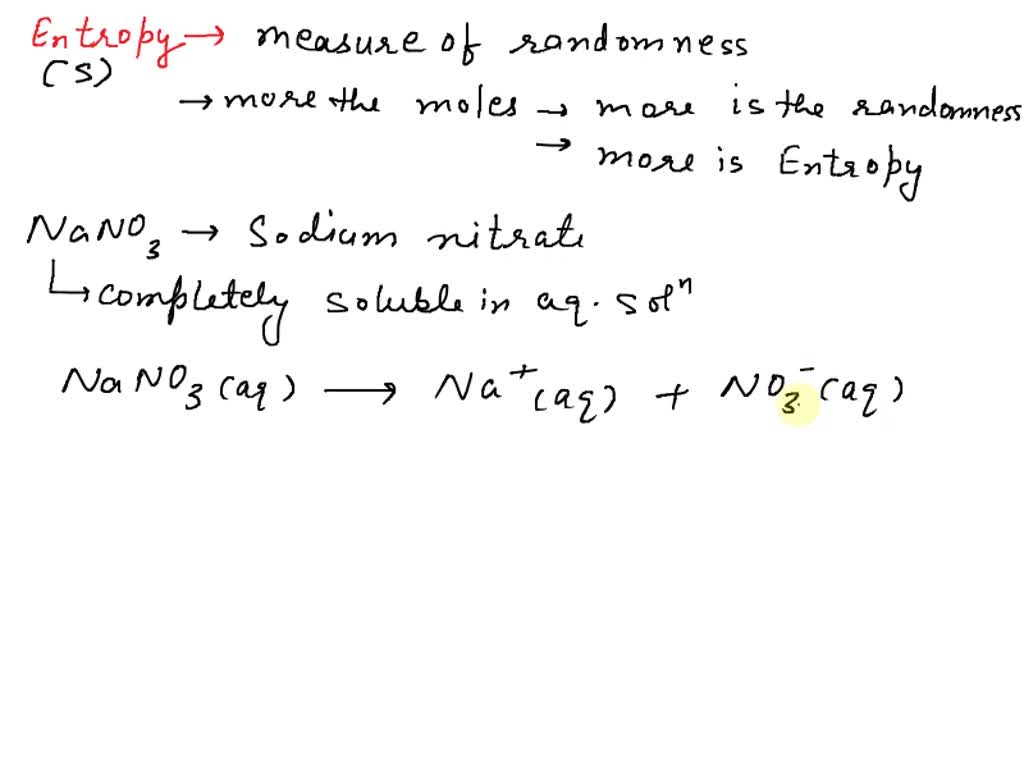 Entropy → measure of randomness
(S)
→ more the moles → more is the randomness
→ more is Entropy
NaNO₃ → Sodium nitrate
↳ completely soluble in aq. solⁿ
NaNO₃(aq) → Na⁺(aq) + NO₃⁻(aq)